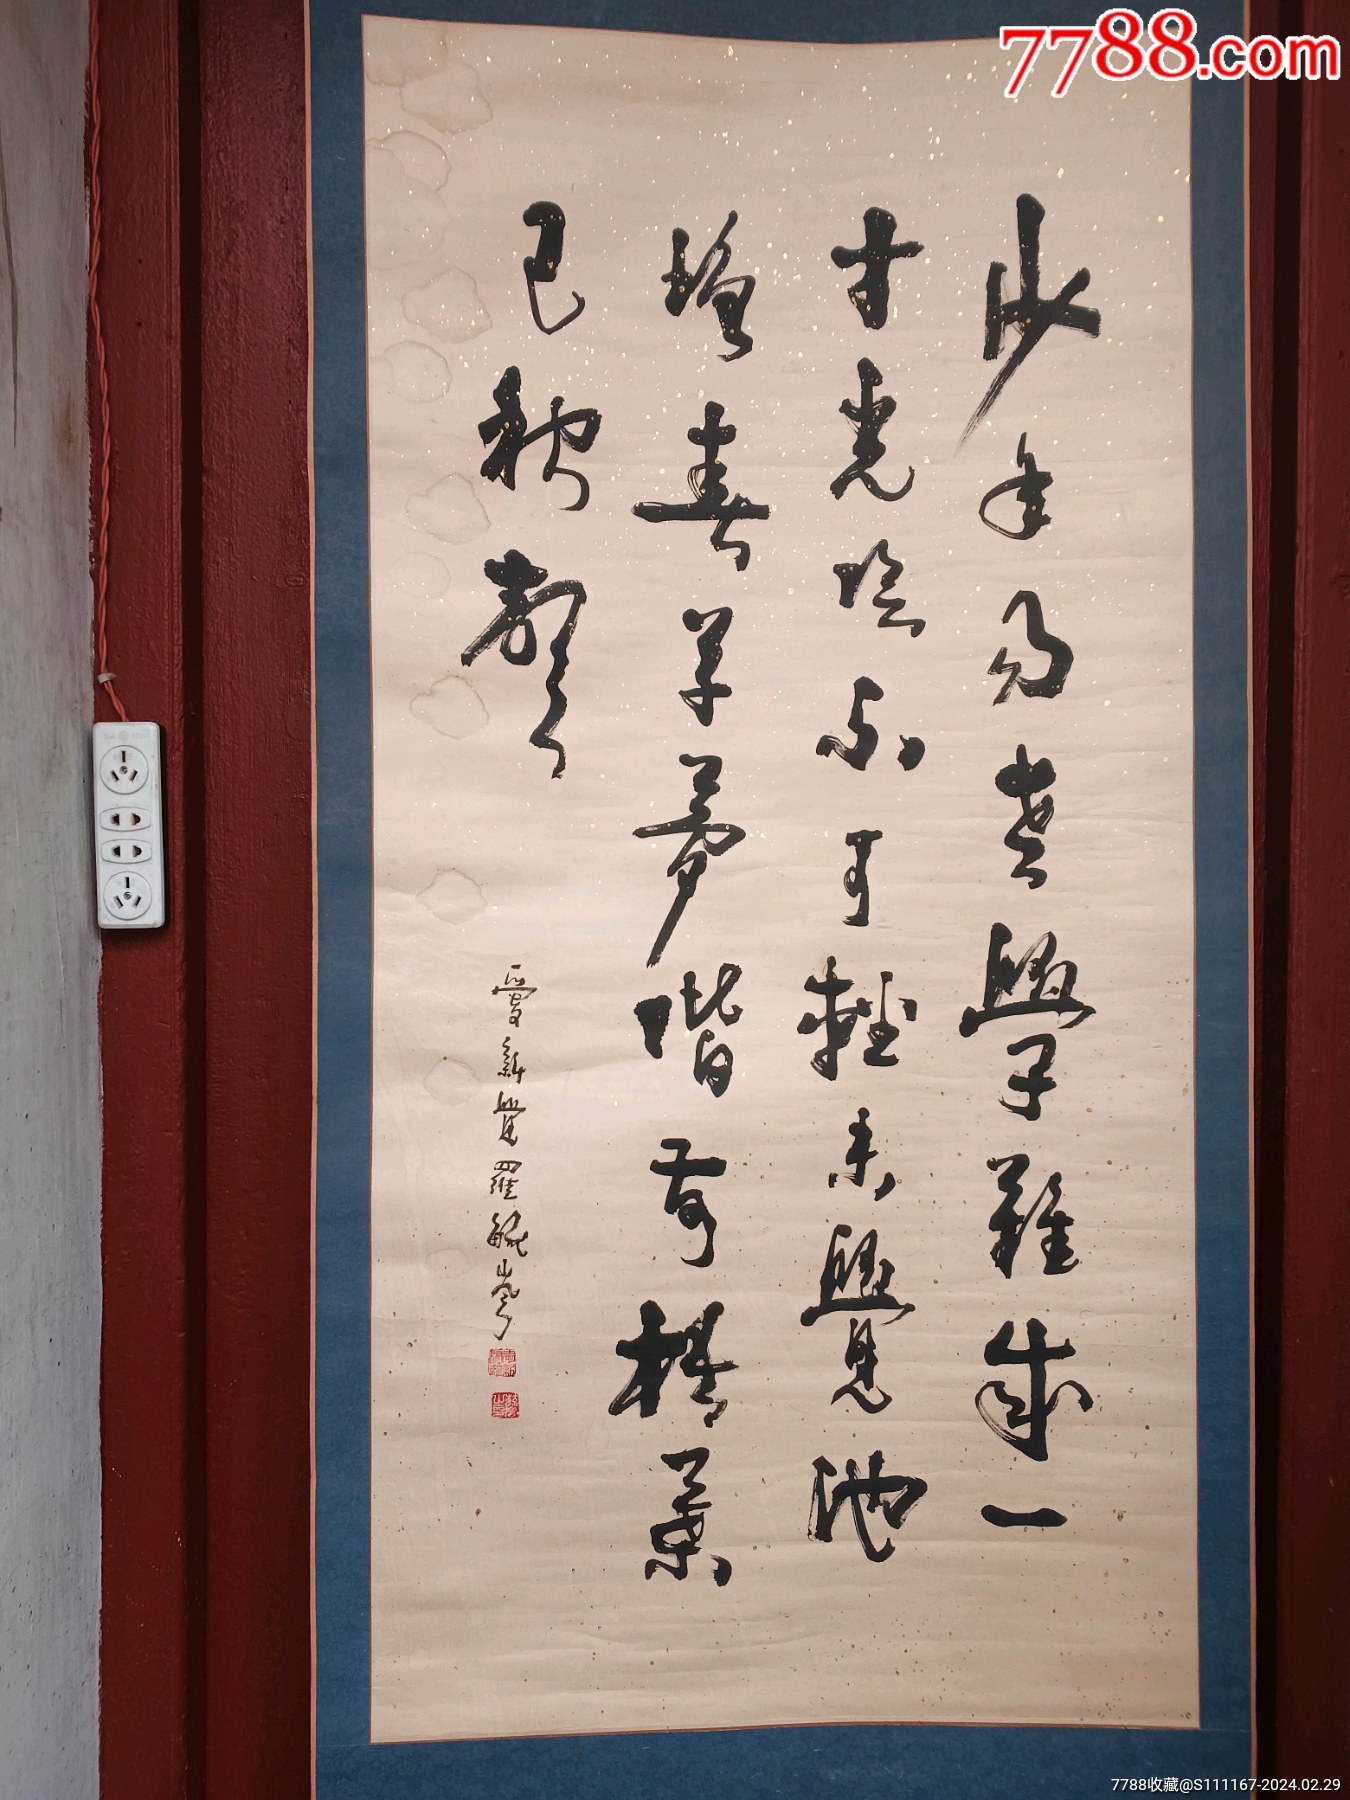 7788.com
少年易老學難成一
寸光陰不可輕未覺池
塘春草夢階前梧葉
已秋聲
愛新覺羅毓
7788收藏@S111167-2024.02.29